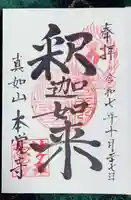 奉拝 令和七年十月二十七日
釈迦如来
真如山 本覚寺